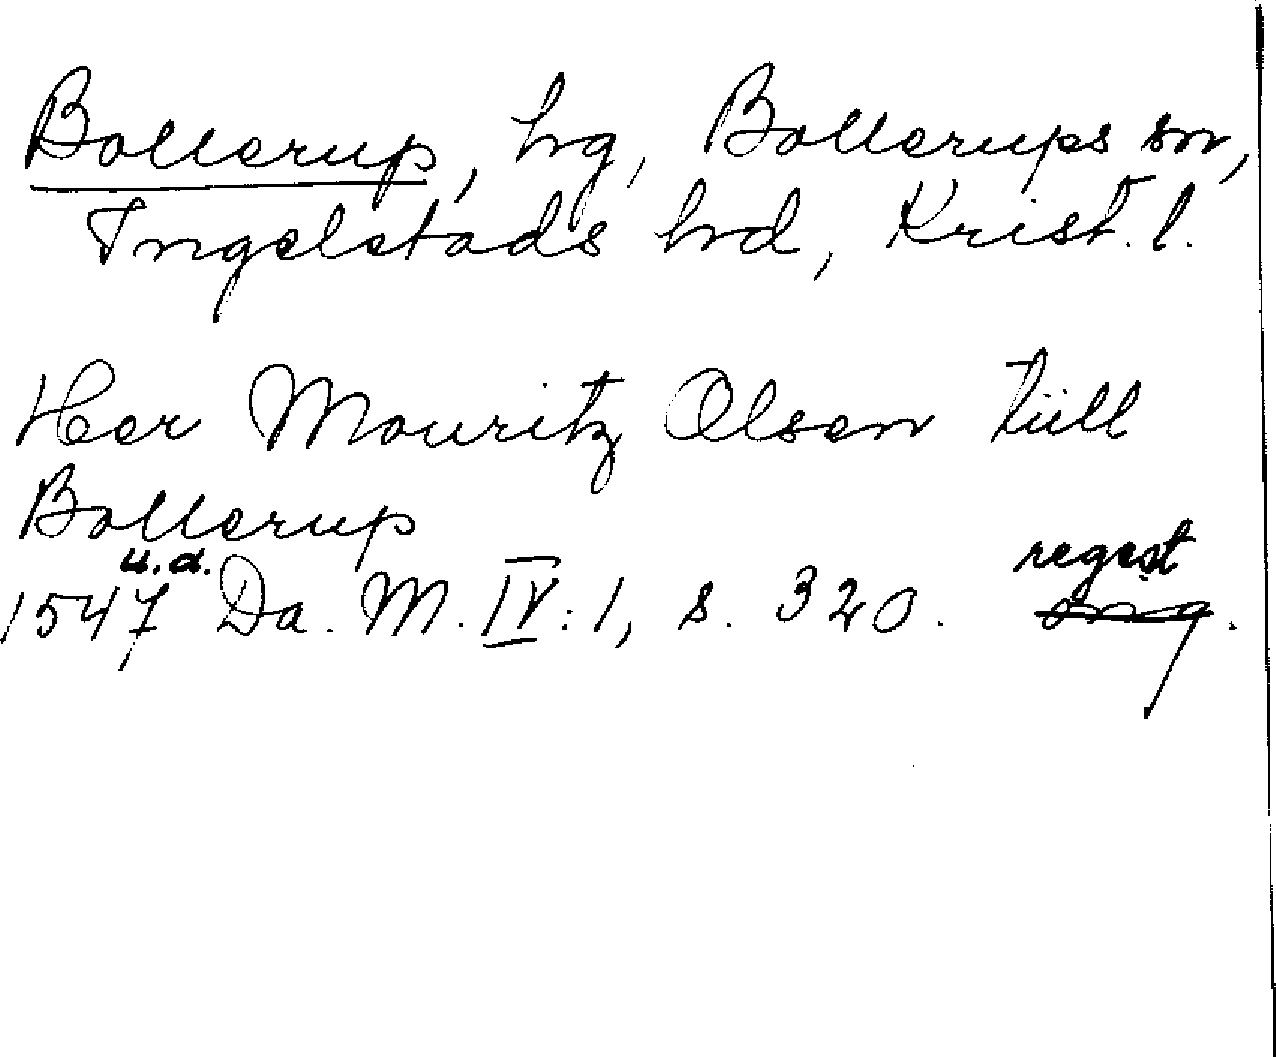 Bollerup, hg, Bollerups sn,
Ingelstads hrd, Krist. l.
Her Mouritz Olsen tiill
Bollerup
u.d.
1547 Da. M. IV: 1, s. 320. regest